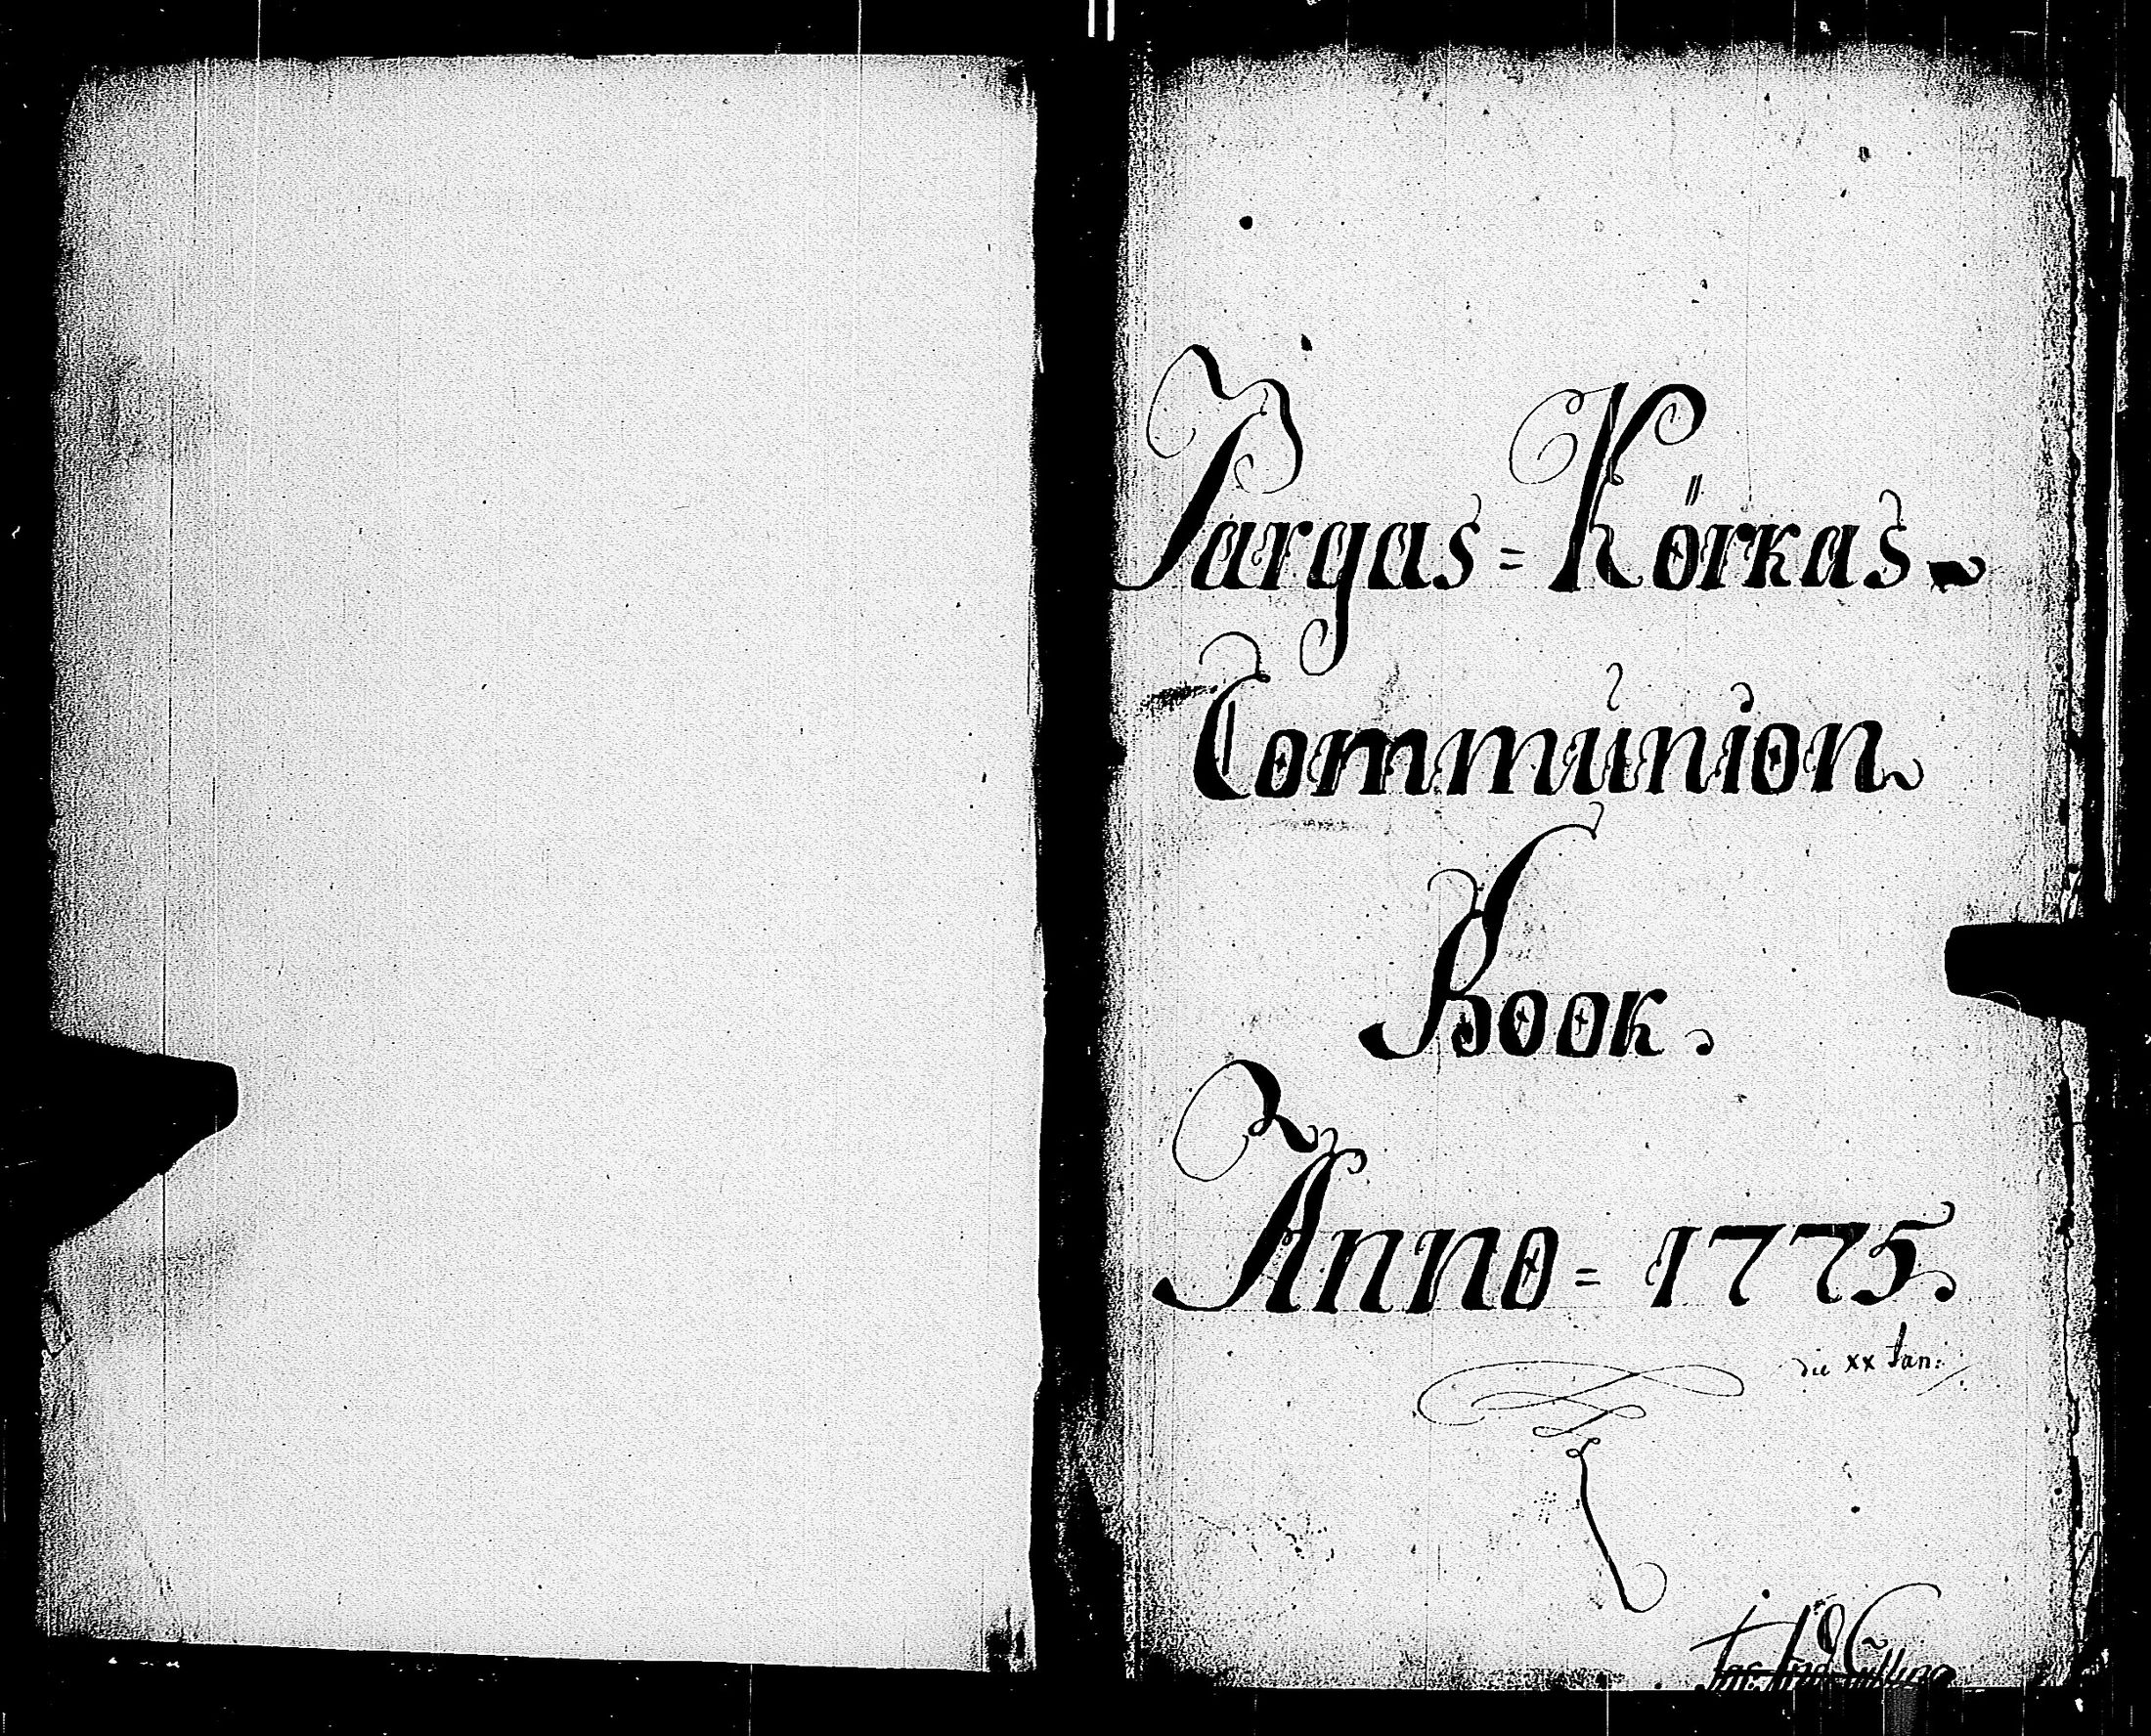 Pargas = Körkas
Communion
Book.
Anno = 1775.
die xx Jan: